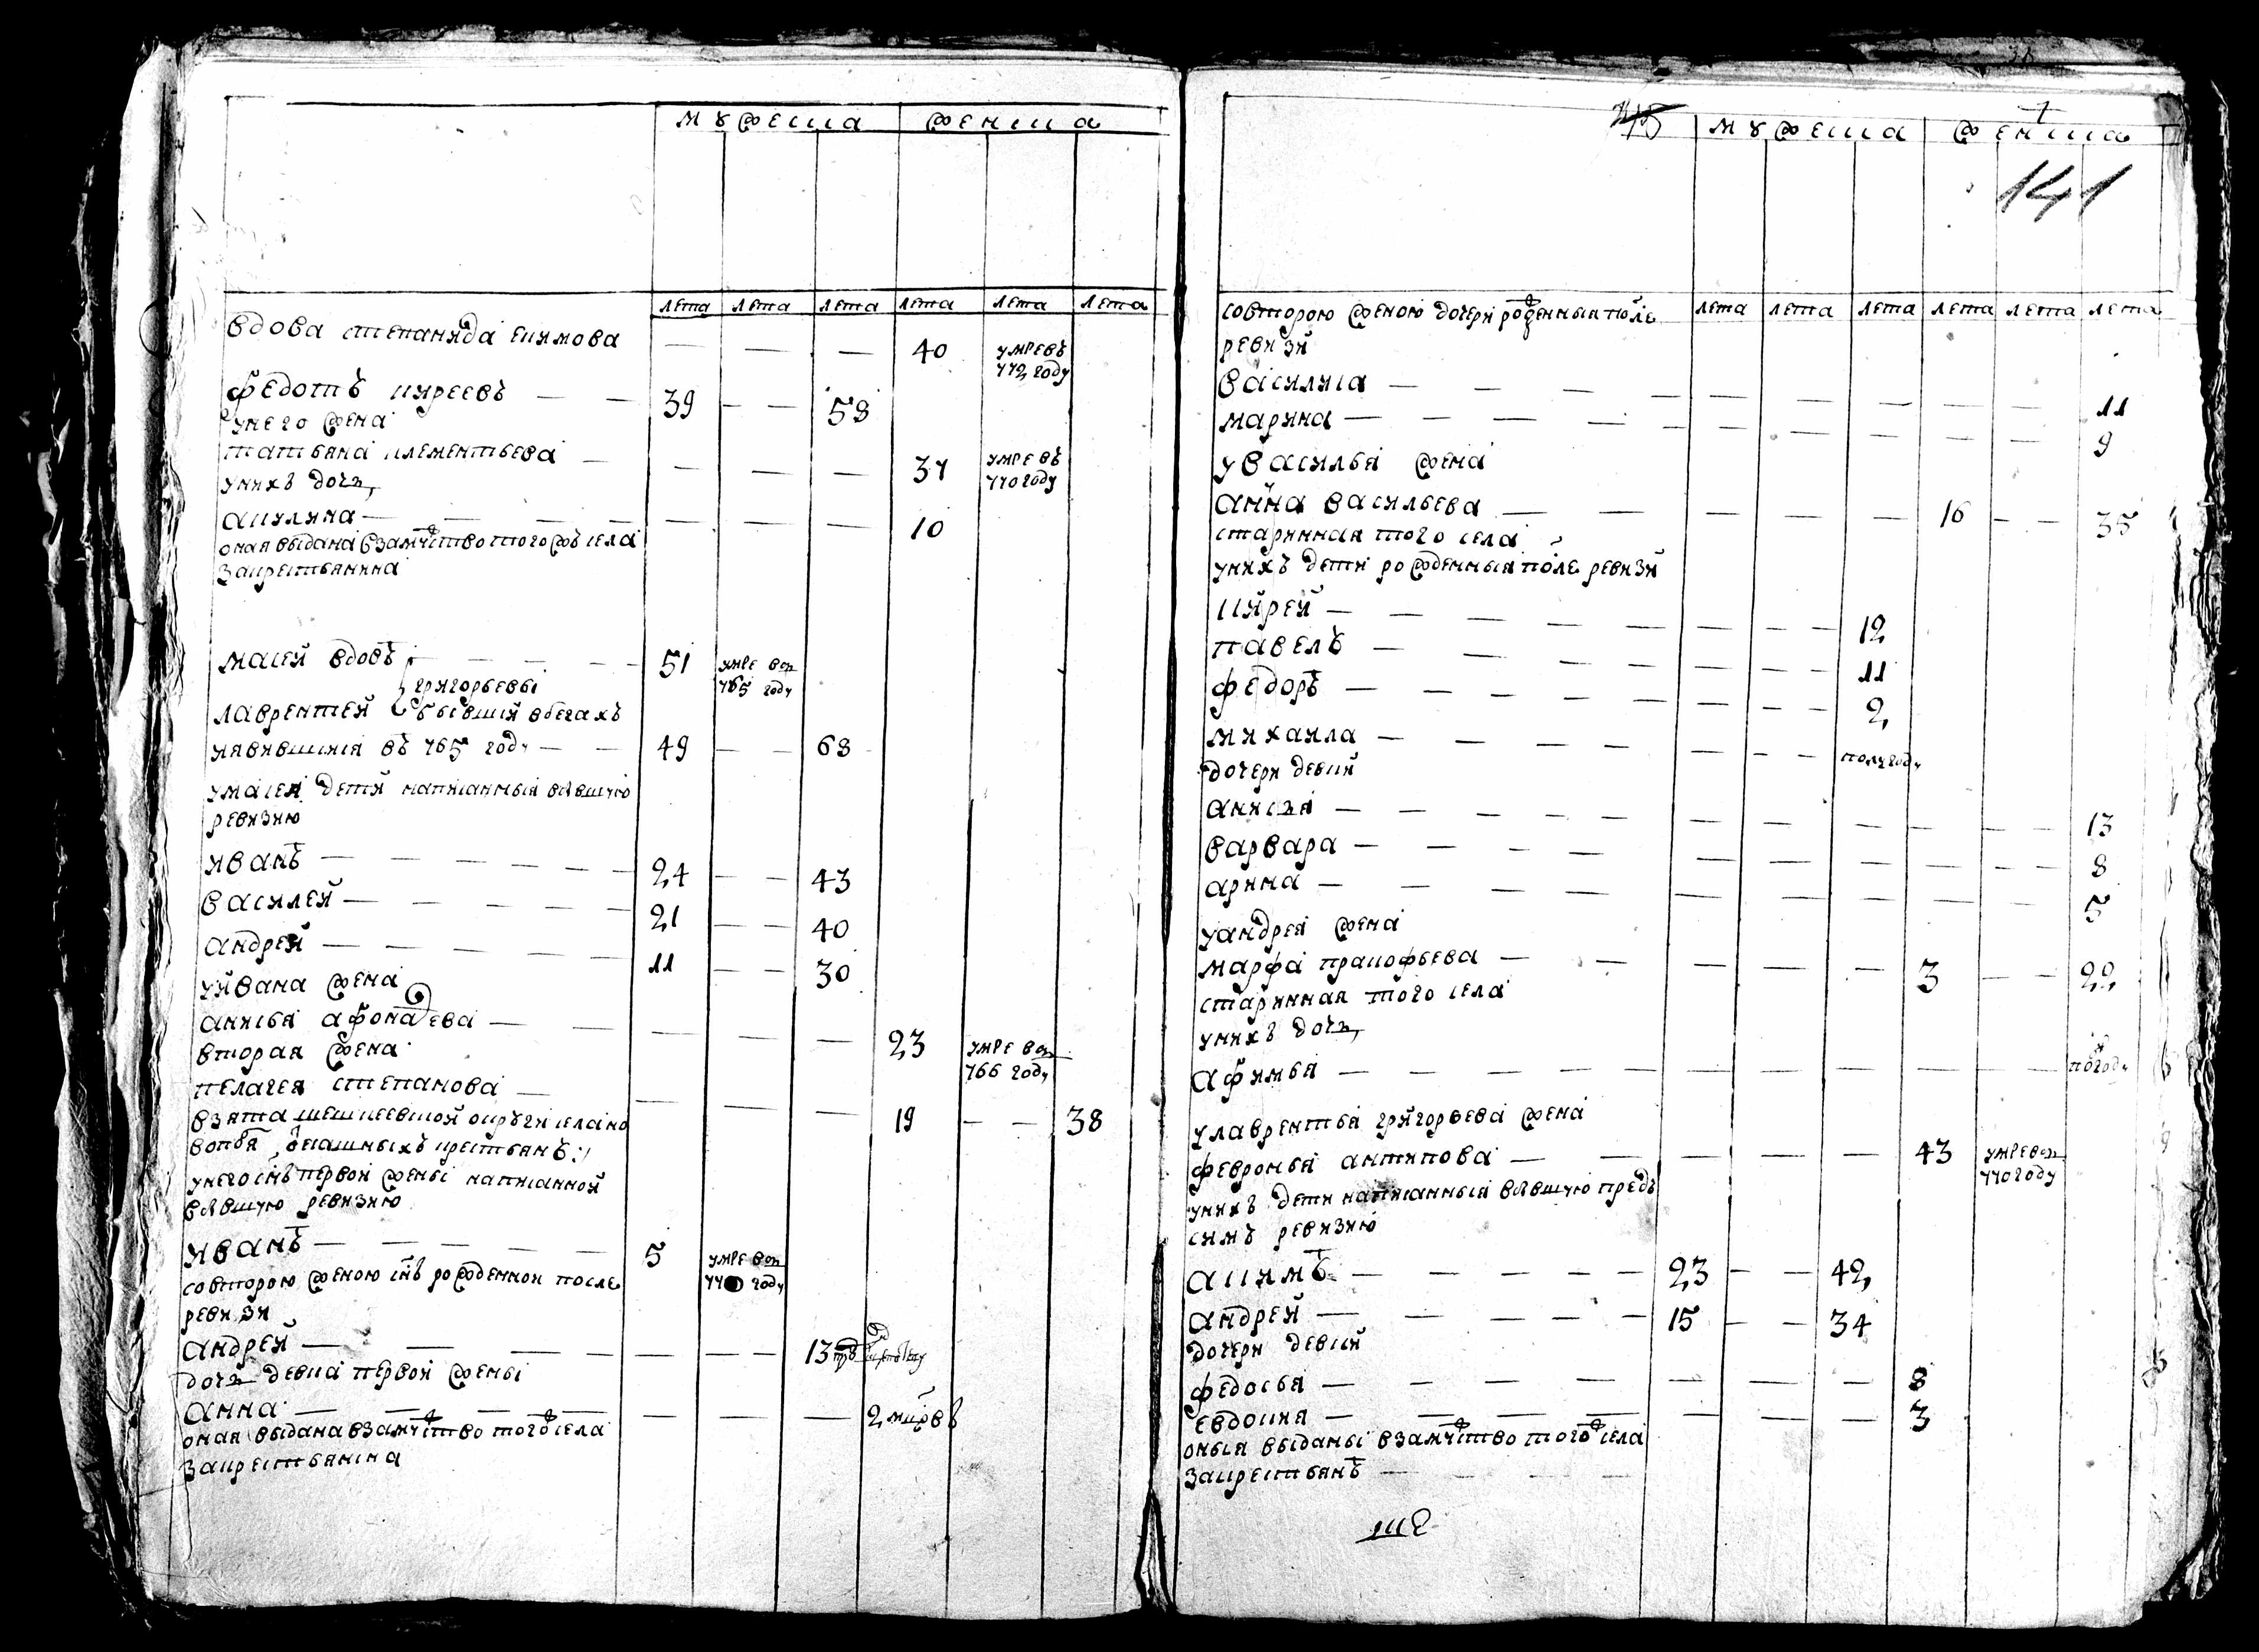 мужеска женска
лета лета лета лета лета лета
вдова степанида екимова — — 40 умре въ
772 году
федотъ киреевъ — — 39 — — 58
унего жена
татьяна клементьева — — — — 37 умре въ
770 году
унихъ дочь
акилина — — — — — — — 10
оная выдана взамуство того жъ села
закрестьянина
масей вдовъ — — — — 51 умре въ
765 году
григорьевы
лаврентей бывшия вбегахъ
иявившияся въ 765 году — — 49 — — 68
умасея дети написанныя влѣвшую
ревизию
иванъ — — — — — 24 — — 43
василей — — — — — 21 — — 40
андрей — — — — — 11 — — 30
уивана жена
анисья афонасева — — — — — 23 умре въ
766 году
вторая жена
пелагея степанова — — — — 19 — — 38
взята шешкеевской округи села но
унего снъ первой жены написанной
влѣвшую ревизию
иванъ — — — — — 5 умре въ
году
совторою женою снъ рожденной после
ревизи
андрей — — — — — — — 13
дочь девка первой жены
анна — — — — — — — 2
оная выдана взамуство того села
закрестьянина
мужеска женска
141
совторою женою дочери рожденныя после лета лета лета лета лета лета
ревизи
васи­лиса — — — — — — — — — 11
марина — — — — — — — — — 9
увасилья жена
анна васильева — — — — — 16 — — 35
старинная того села
унихъ дети рожденныя после ревизи
кирей — — — — — — — 12
павелъ — — — — — — — 11
федоръ — — — — — — — 2
михаила — — — — — — — полугоду
дочери девки
анисья — — — — — — — — — 13
варвара — — — — — — — — — 8
арина — — — — — — — — — 5
уандрея жена
марфа пракофьева — — — — — 3 — — 22
старинная того села
унихъ дочь
афимья — — — — — — — — — полгоду
улаврентья григорьева жена
февронья антипова — — — — — 43 умре въ
770 году
унихъ дети написанныя влѣвшую предъ
симъ ревизию
акимъ — — — — — 23 — — 42
андрей — — — — — 15 — — 34
дочери девки
федосья — — — — — — — 8
евдокия — — — — — — — 3
оныя выданы взамуство того села
закрестьянъ — — — —